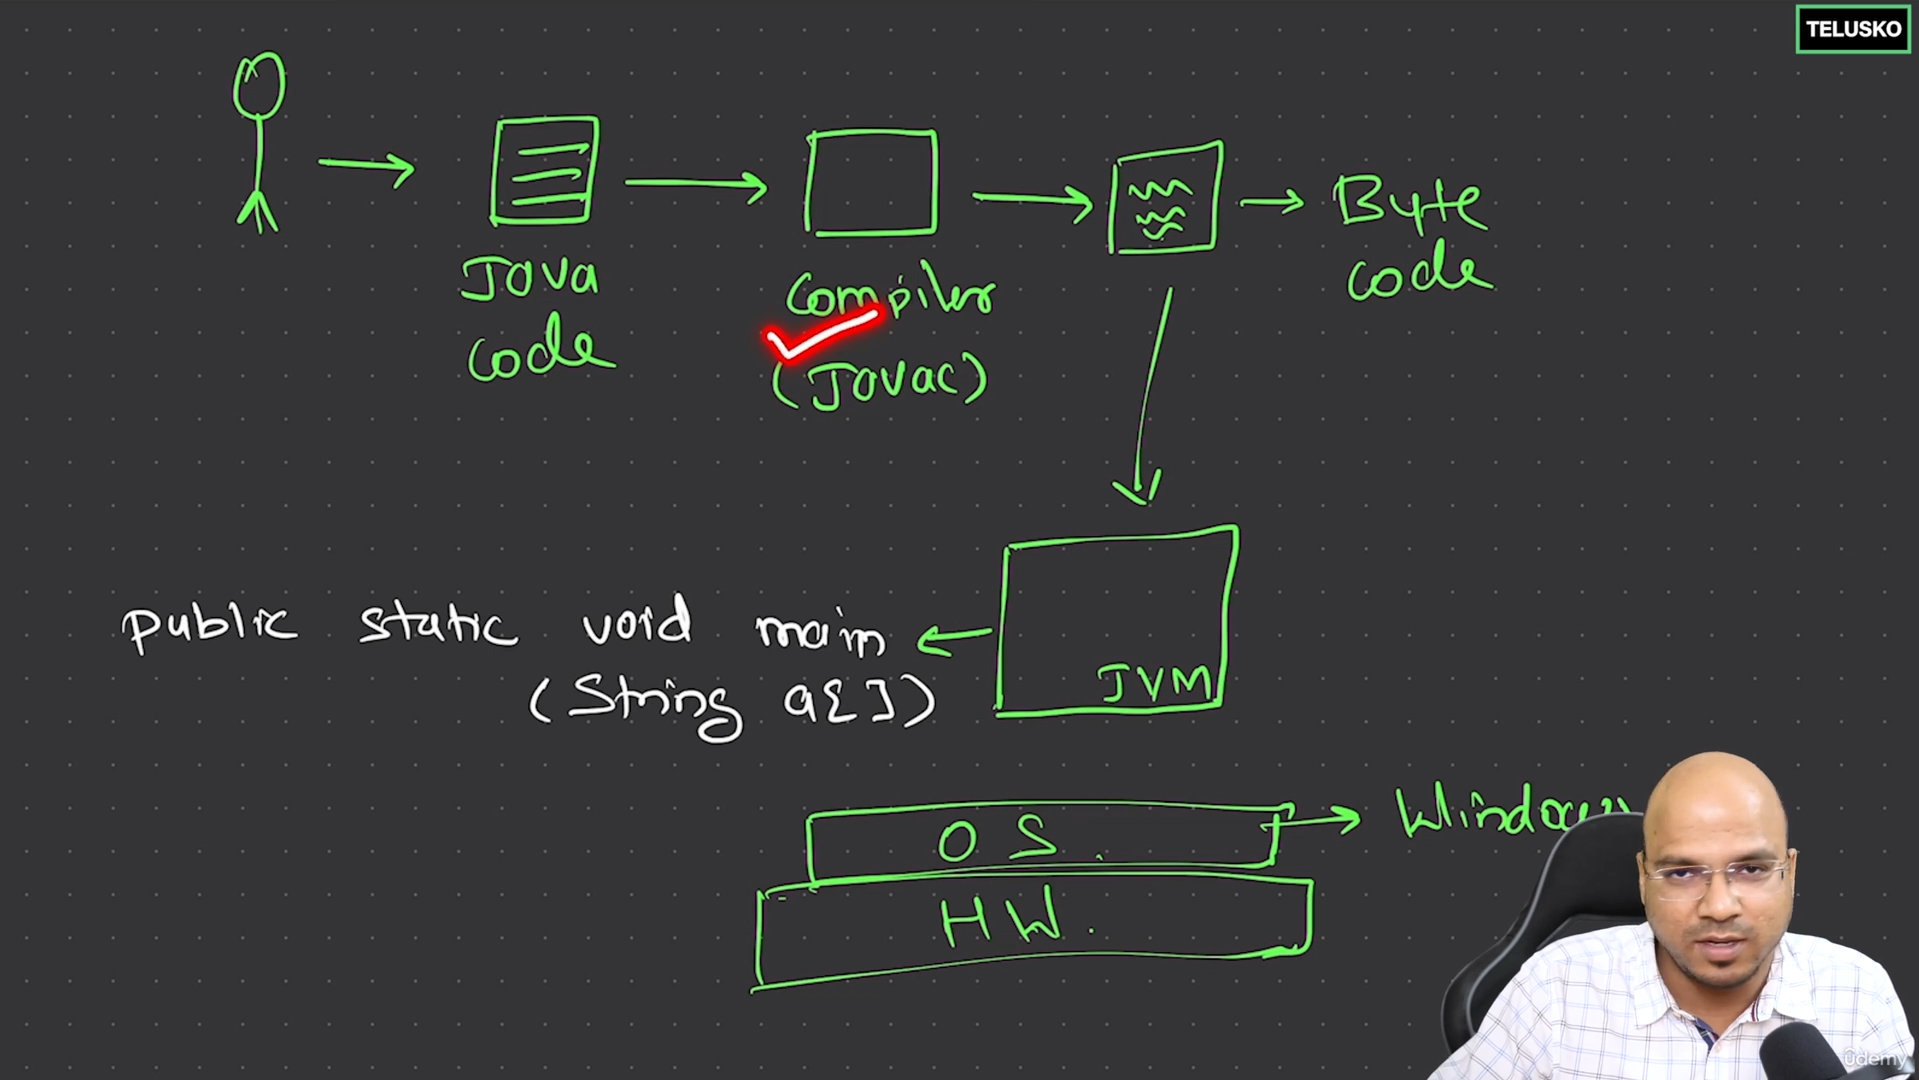 TELUSKO
Java
code
Compiler
(Javac)
Byte
code
public static void main
(String a[])
JVM
OS.
HW.
Windows
ûdemy